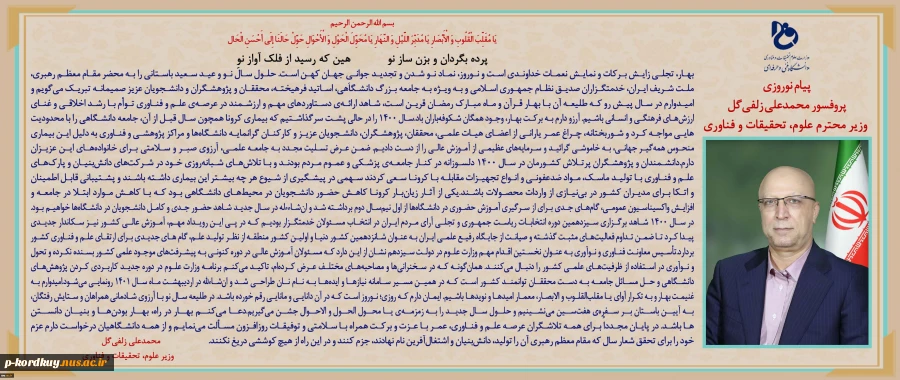 بسم الله الرحمن الرحیم
یَا مُقَلِّبَ الْقُلُوبِ وَ الْأَبْصَارِ یَا مُدَبِّرَ اللَّیْلِ وَ النَّهَارِ یَا مُحَوِّلَ الْحَوْلِ وَ الْأَحْوَالِ حَوِّلْ حَالَنَا إِلَی أَحْسَنِ الْحَالِ
پرده بگردان و بزن ساز نو هین که رسید از فلک آواز نو
وزارت علوم، تحقیقات و فناوری
پیام نوروزی
پروفسور محمدعلی زلفی‌گل
وزیر محترم علوم، تحقیقات و فناوری
بهار، تجلی زایش برکات و نمایش نعمات خداوندی است و نوروز، نماد نو شدن و تجدید جوانی جهان کهن است. حلول سال نو و عید سعید باستانی را به محضر مقام معظم رهبری،
ملت شریف ایران، خدمتگزاران صدیق نظام جمهوری اسلامی و به ویژه به جامعه بزرگ دانشگاهی، اساتید فرهیخته، محققان و پژوهشگران و دانشجویان عزیز صمیمانه تبریک می‌گویم و
امیدوارم در سال پیش رو که طلیعه آن با بهار قرآن و ماه مبارک رمضان قرین است، شاهد ارائه‌ی دستاوردهای مهم و ارزشمند در عرصه‌ی علم و فناوری توأم با رشد اخلاقی و غنای
ارزش‌های فرهنگی و انسانی باشیم. آرزو دارم به برکت بهار، وجود همگان شکوفه‌باران باد. سال ۱۴۰۰ را در حالی پشت سر گذاشتیم که بیماری کرونا همچون سال قبل از آن، جامعه دانشگاهی را با محدودیت
هایی مواجه کرد و شوربختانه، چراغ عمر یارانی از اعضای هیات علمی، محققان، پژوهشگران، دانشجویان عزیز و کارکنان گرانمایه دانشگاه‌ها و مراکز پژوهشی و فناوری به دلیل این بیماری
منحوس همه‌گیر جهانی، به خاموشی گرائید و سرمایه‌های عظیمی از آموزش عالی را از دست دادیم. ضمن عرض تسلیت مجدد به جامعه علمی، آرزوی صبر و سلامتی برای خانواده‌های این عزیزان
دارم. دانشمندان و پژوهشگران پرتلاش کشورمان در سال ۱۴۰۰ دلسوزانه در کنار جامعه‌ی پزشکی و عموم مردم بودند و با تلاش‌های شبانه‌روزی خود در شرکت‌های دانش‌بنیان و پارک‌های
علم و فناوری با تولید ماسک، مواد ضدعفونی و انواع تجهیزات مقابله با کرونا سعی کردند سهمی در پیشگیری از شیوع هر چه بیشتر این بیماری داشته باشند و پشتیبانی قابل اطمینان
و اتکا برای مدیران کشور در بی‌نیازی از واردات محصولات باشند. یکی از آثار زیان‌بار کرونا کاهش حضور دانشجویان در محیط‌های دانشگاهی بود که با کاهش موارد ابتلا در جامعه و
افزایش واکسیناسیون عمومی، گام‌های جدی برای از سرگیری آموزش حضوری در دانشگاه‌ها از اول نیم‌سال دوم برداشته شد و ان‌شاءالله در سال جدید شاهد حضور جدی و کامل دانشجویان در دانشگاه‌ها خواهیم بود.
در سال ۱۴۰۰ شاهد برگزاری سیزدهمین دوره انتخابات ریاست جمهوری و تجلی آرای مردم ایران در انتخاب مسئولان خدمتگزار بودیم که در پی این رویداد مهم، آموزش عالی کشور نیز سکاندار جدیدی
پیدا کرد تا ضمن تداوم فعالیت‌های مثبت گذشته و صیانت از جایگاه رفیع علمی ایران به عنوان شانزدهمین کشور دنیا و اولین کشور منطقه از نظر تولید علم، گام های جدیدی برای ارتقای علم و فناوری کشور
بردارد. تأسیس معاونت فناوری و نوآوری به عنوان نخستین اقدام مهم وزارت علوم در دولت سیزدهم نشان از این دارد که مسئولان آموزش عالی در دوره کنونی به پیشرفت‌های موجود علمی کشور بسنده نکرده و تحول
و نوآوری در استفاده از ظرفیت‌های علمی کشور را دنبال می‌کنند. همان‌گونه که در سخنرانی‌ها و مصاحبه‌های مختلف عرض کرده‌ام، تاکید می‌کنم برنامه وزارت علوم در دوره جدید کاربردی کردن پژوهش‌های
دانشگاهی و حل مسائل جامعه به دست محققان توانمند کشور است که در همین مسیر سامانه نیازها و ایده‌ها به نام نان طراحی شد و ان‌شالله در اردیبهشت ماه سال ۱۴۰۱ رونمایی می‌شود. امیدوارم به
غنیمت بهار و به تکرار آوای یا مقلب‌القلوب و الابصار، معمار امیدها و نویدها باشیم. ایمان دارم که روزی نو روز است که در آن دانایی و مانایی رقم خورده باشد. در طلیعه سال نو با آرزوی شادمانی همراهان و ستایش رفتگان،
به آیین باستان بر سفره‌ی هفت‌سین می‌نشینیم و حلول سال جدید را به زمزمه‌ی یا محول الحول و الاحوال جشن می‌گیریم. دعا می‌کنم بهار در راه، بهار بودن‌ها و بنیان دانستن
ها باشد. در پایان مجددا برای همه تلاشگران عرصه علم و فناوری، عمر با عزت و برکت همراه با سلامتی و توفیقات روزافزون مسألت می‌نمایم و از همه دانشگاهیان درخواست دارم عزم
خود را برای تحقق شعار سال که مقام معظم رهبری آن را تولید، دانش‌بنیان و اشتغال‌آفرین نام نهادند، جزم کنند و در این راه از هیچ کوششی دریغ نکنند.
محمدعلی زلفی گل
وزیر علوم، تحقیقات و فناوری
p-kordkuy.nus.ac.ir